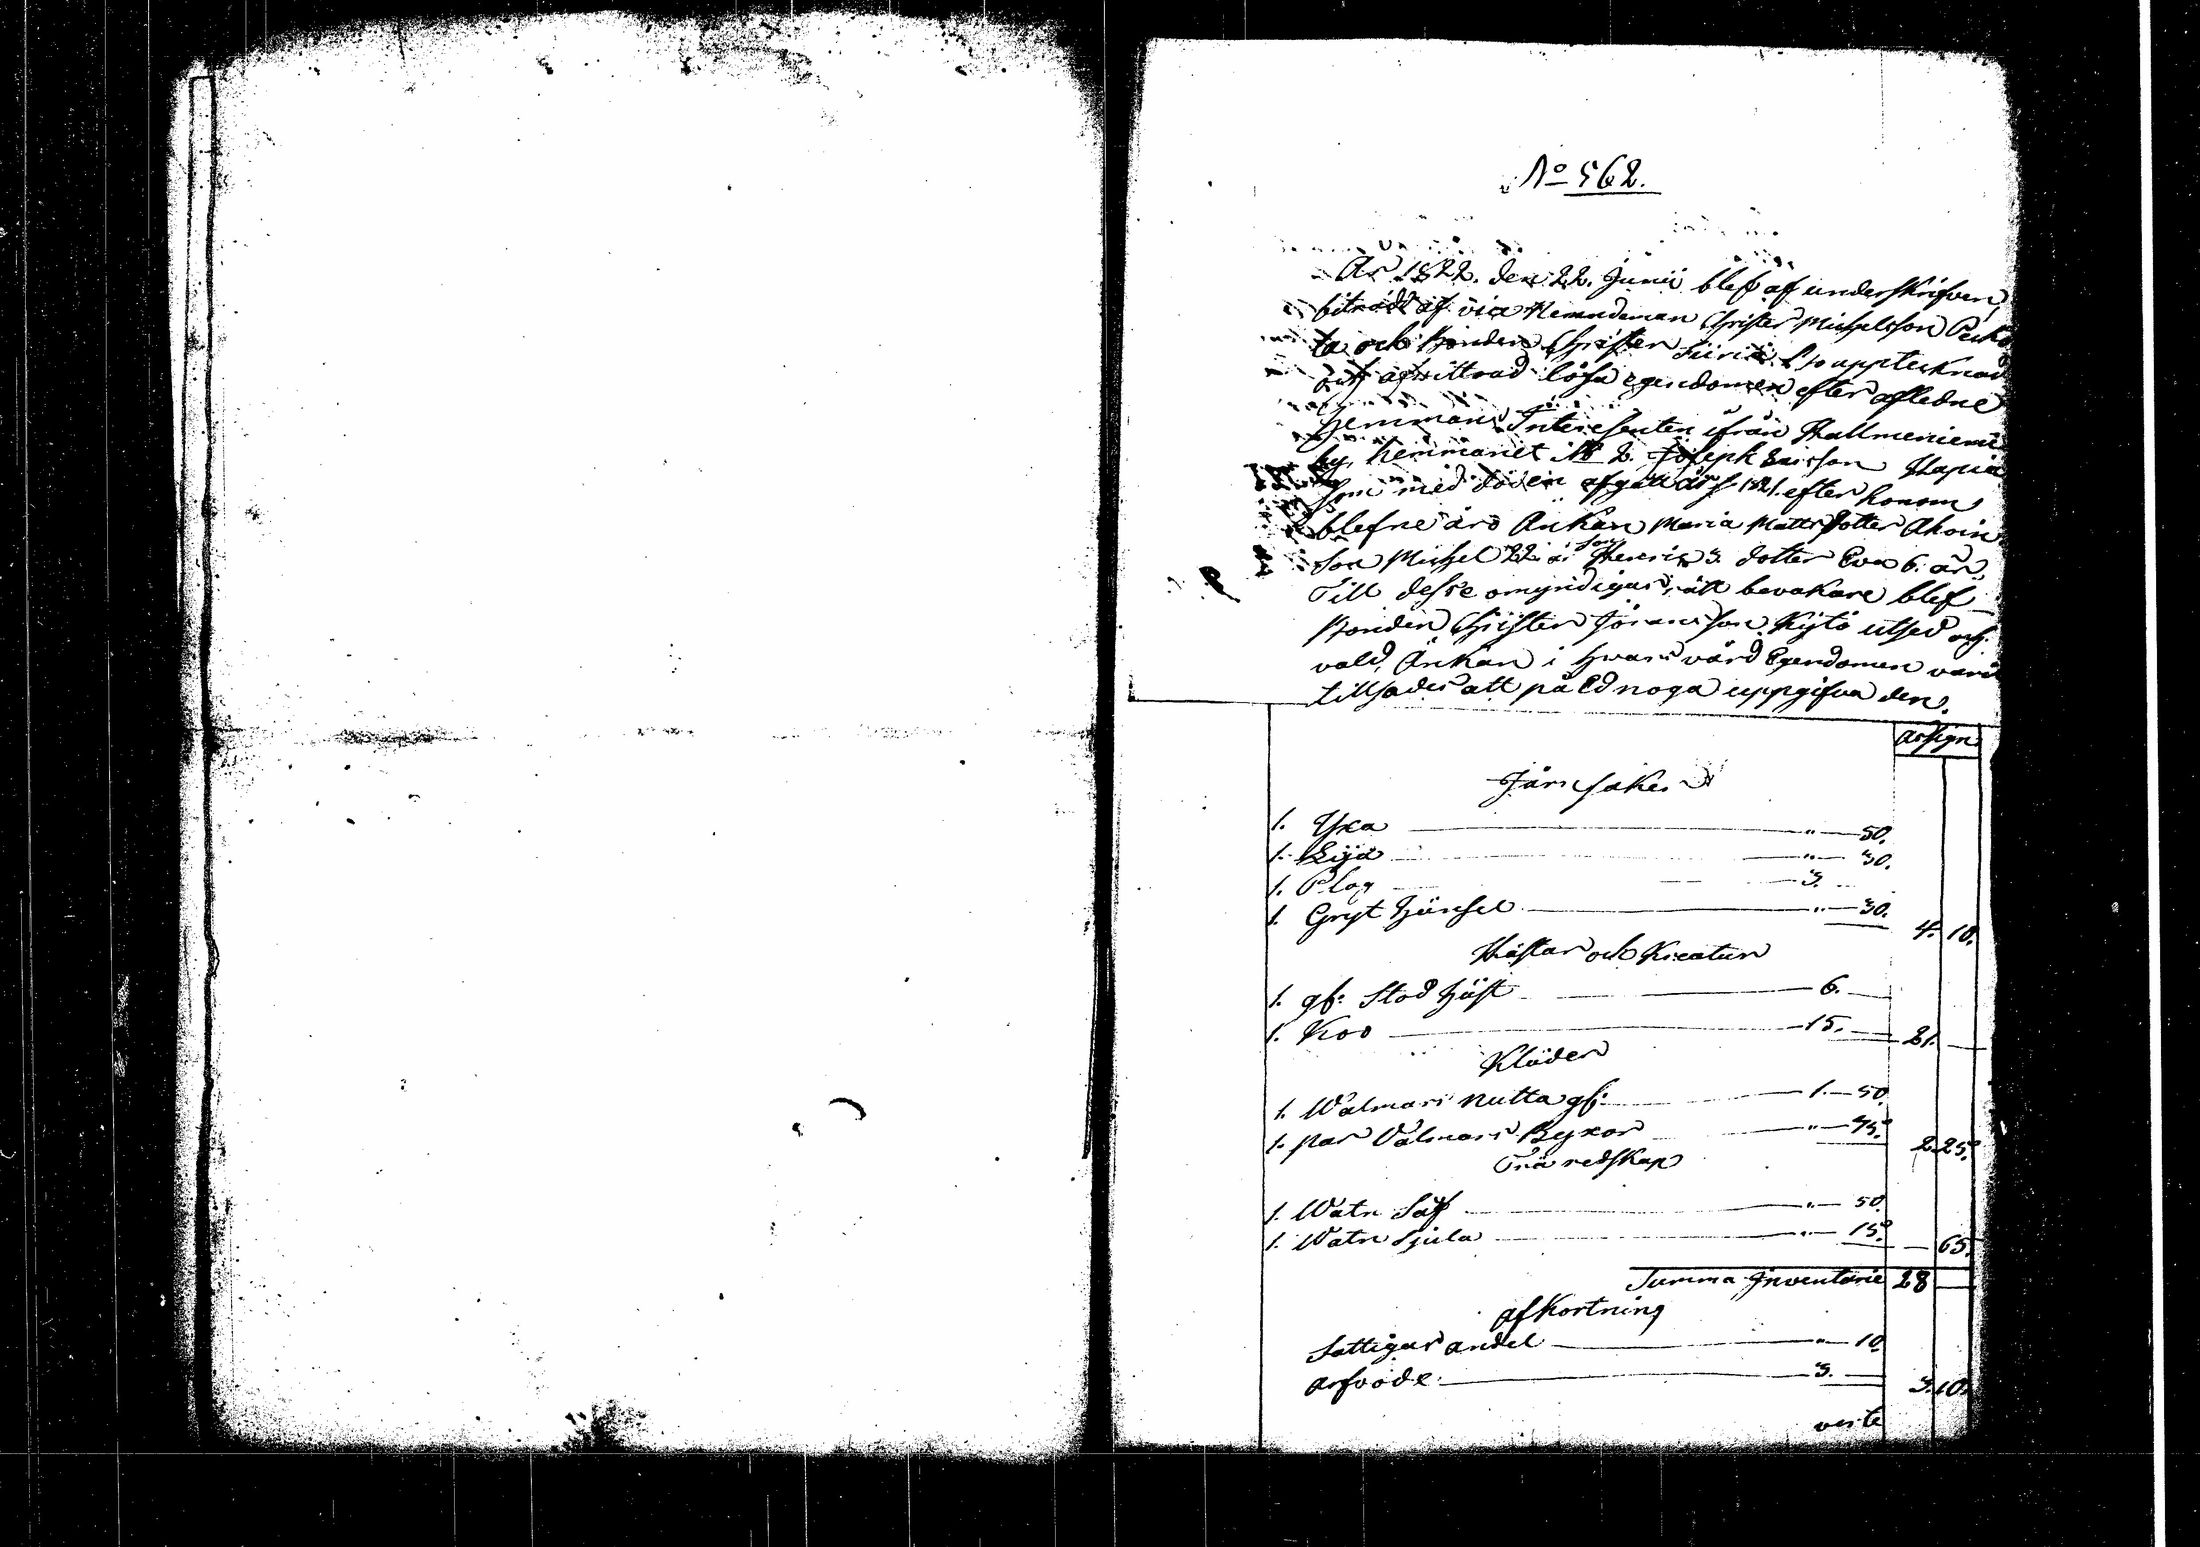 No 562.
År 1822. den 22. Junii blef af underskrifven,
biträdd af vice Nemndeman Christer Michelsson
ta och Bonden Christer upptecknad
och afvittrad lösa egendomen efter afledne
Hemmans Interesenten ifrån Hallmeniemi
by, hemmanet No 2. Joseph Larsson Hapia
som med döden afgått år 1821. efter honom
blefne äro Ankan Maria Mattsdotter
Son Michel 22 år son Henric 3. dotter Eva 6. år.
Till desse omyndigas rätt bevakare blef
Bonden Christer Jöransson Kytö utsed och
vald, Änkan i hvars vård Egendomen varit
tillsades att på Ed noga uppgifva den.
assign
Järnsaker
1. Yxa " 50.
1. Lija " 30.
1. Plog 3.
1. Gryt hänsel " 30. 4. 10.
Hästar och Kreatur
1. gf: Stod häst 6.
1. Koo 15. 21.
Kläder
1. Walmars Mutta gf: 1. 50.
1. par Valmars Byxor " 75. 2. 25.
Trä redskap
1. Watn Så " 50.
1. Watn Kjula " 15. 65.
Summa Inventarie 28
afkortning
Fattigas andel " 10.
arfvode 3. 3. 10.
verte